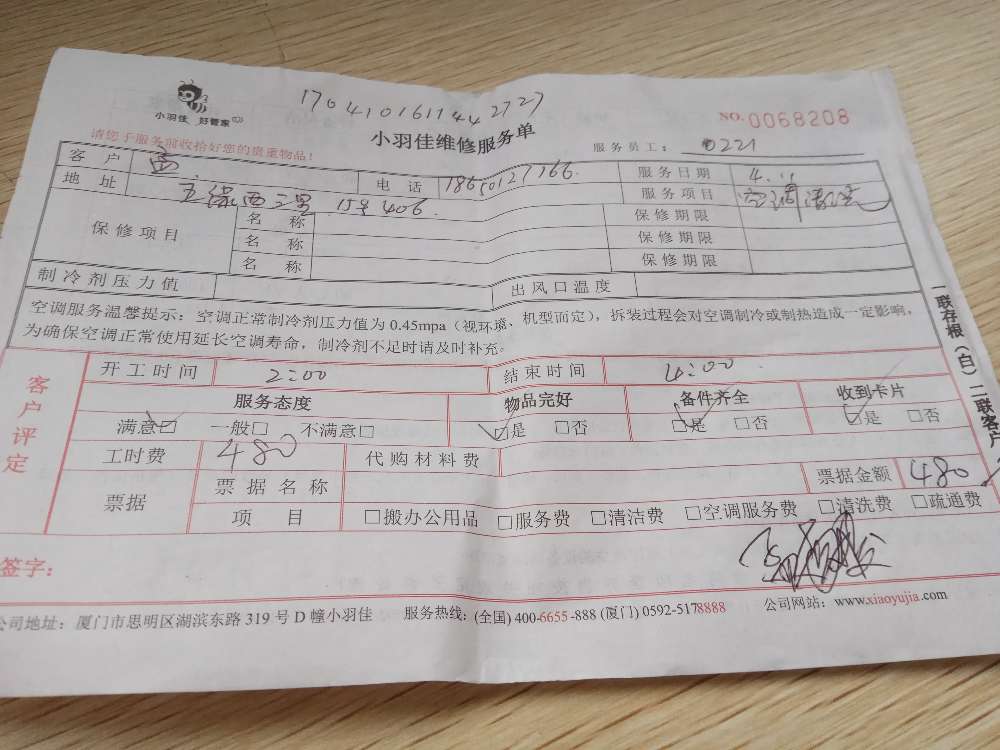 17041016114 42727
小羽佳 好管家
小羽佳维修服务单
NO.0068208
请您于服务前收拾好您的贵重物品！
服务员工： 0221
客户 电话 18650127766. 服务日期 4.11
地址 西三里 15号 406. 服务项目 空调清洗
保修项目 名称 保修期限
名称 保修期限
名称 保修期限
制冷剂压力值 出风口温度
空调服务温馨提示：空调正常制冷剂压力值为0.45mpa（视环境、机型而定），拆装过程会对空调制冷或制热造成一定影响，
为确保空调正常使用延长空调寿命，制冷剂不足时请及时补充。
客户评定
开工时间 2:00 结束时间 4:00
服务态度 物品完好 备件齐全 收到卡片
满意☑ 一般□ 不满意□ ☑是 □否 ☑是 □否 ☑是 □否
工时费 480 代购材料费
票据 票据名称 票据金额 480
项目 □搬办公用品 □服务费 □清洁费 □空调服务费 □清洗费 □疏通费
签字：
公司地址：厦门市思明区湖滨东路319号D幢小羽佳 服务热线：(全国) 400-6655-888 (厦门) 0592-5178888 公司网站：www.xiaoyujia.com
一联存根（白）二联客户